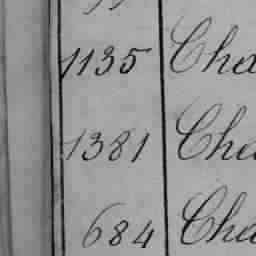 1135 Cha
1381 Cha
684 Cha